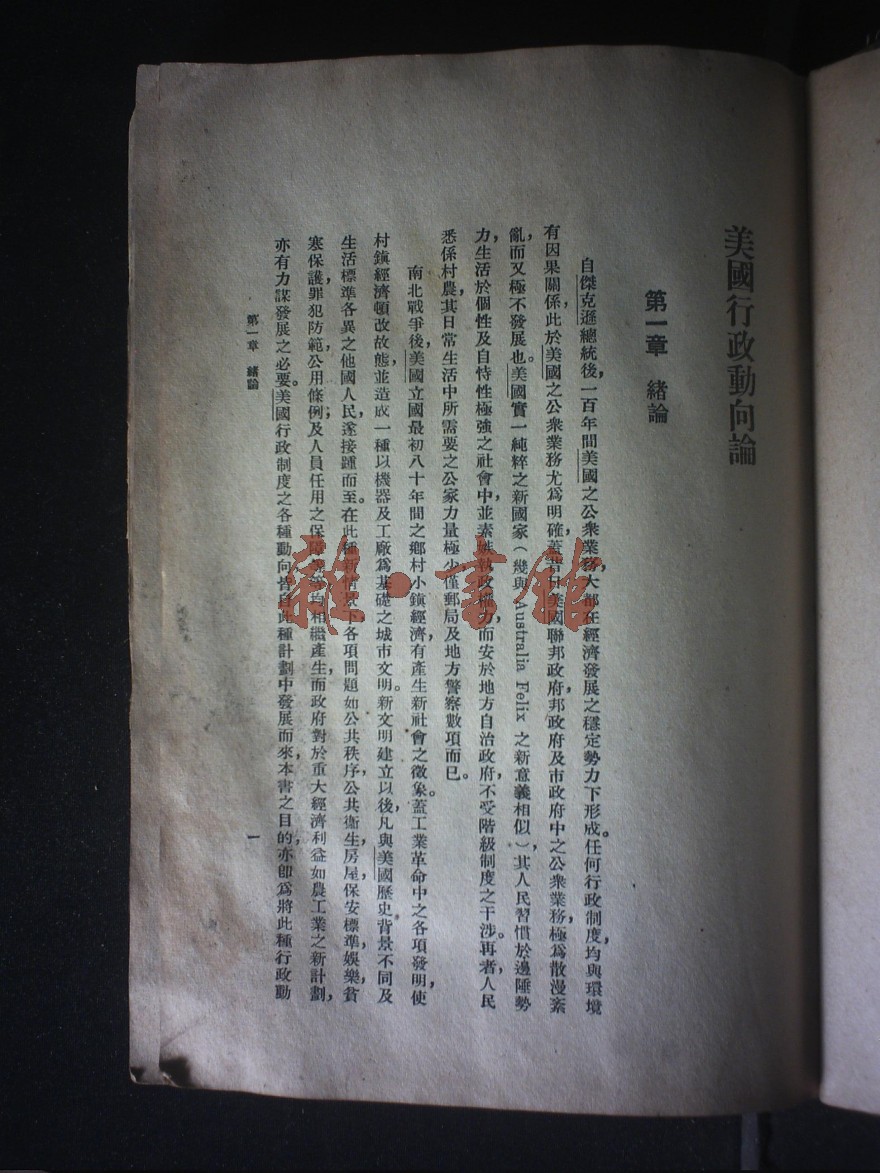 美國行政動向論
第一章　緒論
自傑克遜總統後，一百年間美國之公衆業務，大都在經濟發展之穩定勢力下形成。任何行政制度，均與環境
有因果關係，此於美國之公衆業務尤爲明確，蓋昔日美國聯邦政府，邦政府及市政府中之公衆業務，極爲散漫紊
亂，而又極不發展也。美國實一純粹之新國家（幾與Australia Felix之新意義相似），其人民習慣於邊陲勢
力，生活於個性及自恃性極強之社會中，並素嫉執政權力，而安於地方自治政府，不受階級制度之干涉。再者，人民
悉係村農，其日常生活中所需要之公家力量極少，僅郵局及地方警察數項而已。
南北戰爭後，美國立國最初八十年間之鄉村小鎮經濟，有產生新社會之徵象。蓋工業革命中之各項發明，使
村鎮經濟頓改故態，並造成一種以機器及工廠爲基礎之城市文明。新文明建立以後，凡與美國歷史背景不同及
生活標準各異之他國人民，遂接踵而至。在此種新情景下，各項問題如公共秩序，公共衞生，房屋保安標準，娛樂，貧
寒保護，罪犯防範，公用條例，及人員任用之保障等等，均相繼產生，而政府對於重大經濟利益如農工業之新計劃，
亦有力謀發展之必要。美國行政制度之各種動向，皆自此種計劃中發展而來，本書之目的，亦卽爲將此種行政動
第一章　緒論
一
雜·書館